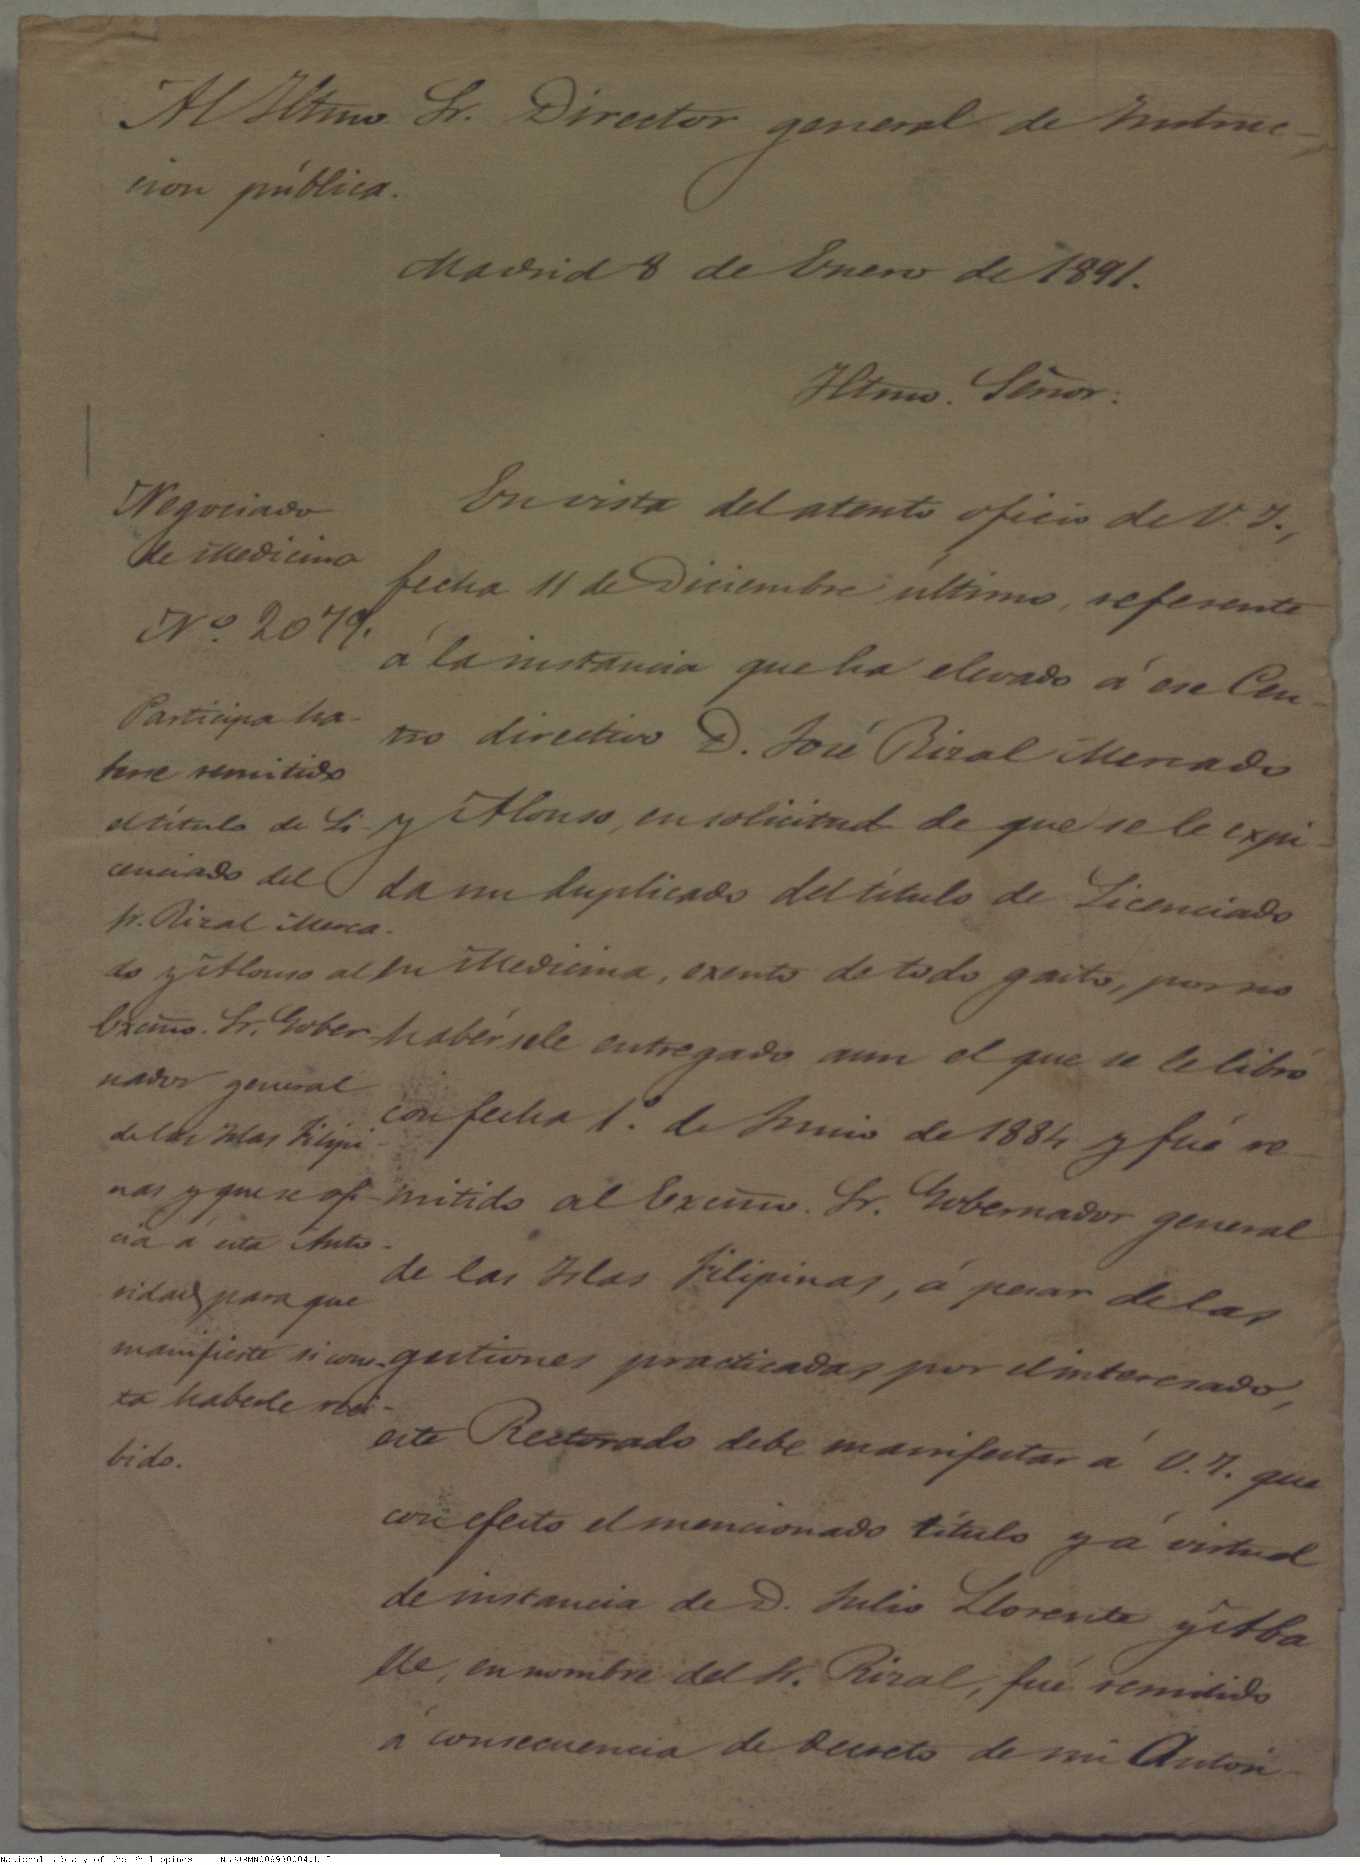 Al Iltmo. Sr. Director general de Instruc-
cion pública.
Madrid 8 de Enero de 1891.
Iltmo. Señor:
Negociado
de Medicina
Nº. 2079.
Participa ha-
berse remitido
el título de Li-
cenciado del
Sr. Rizal Merca-
do y Alonso al
Excmo. Sr. Gober-
nador general
de las Islas Filipi-
nas y que se ofi-
cia á esta Auto-
ridad, para que
manifieste si cons-
ta haberle reci-
bido.
En vista del atento oficio de V. I.,
fecha 11 de Diciembre último, referente
á la instancia que ha elevado á ese Cen-
tro directivo D. José Rizal Mercado
y Alonso, en solicitud de que se le expi-
da un duplicado del título de Licenciado
en Medicina, exento de todo gasto, por no
habérsele entregado aun el que se le libró
con fecha 1º. de Junio de 1884 y fué re-
mitido al Excmo. Sr. Gobernador general
de las Islas Filipinas, á pesar de las
gestiones practicadas por el interesado,
este Rectorado debe manifestar á V. I. que
con efecto el mencionado título y á virtud
de instancia de D. Julio Llorente y Aba
lle, en nombre del Sr. Rizal, fué remitido
á consecuencia de decreto de mi Autori-
National Library of the Philippines